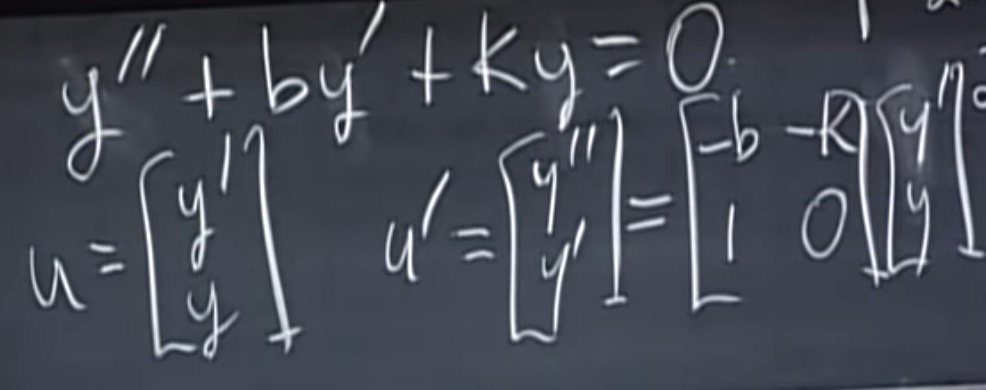 y'' + by' + ky = 0.
u = [y' y] u' = [y'' y'] = [-b -k 1 0] [y' y]